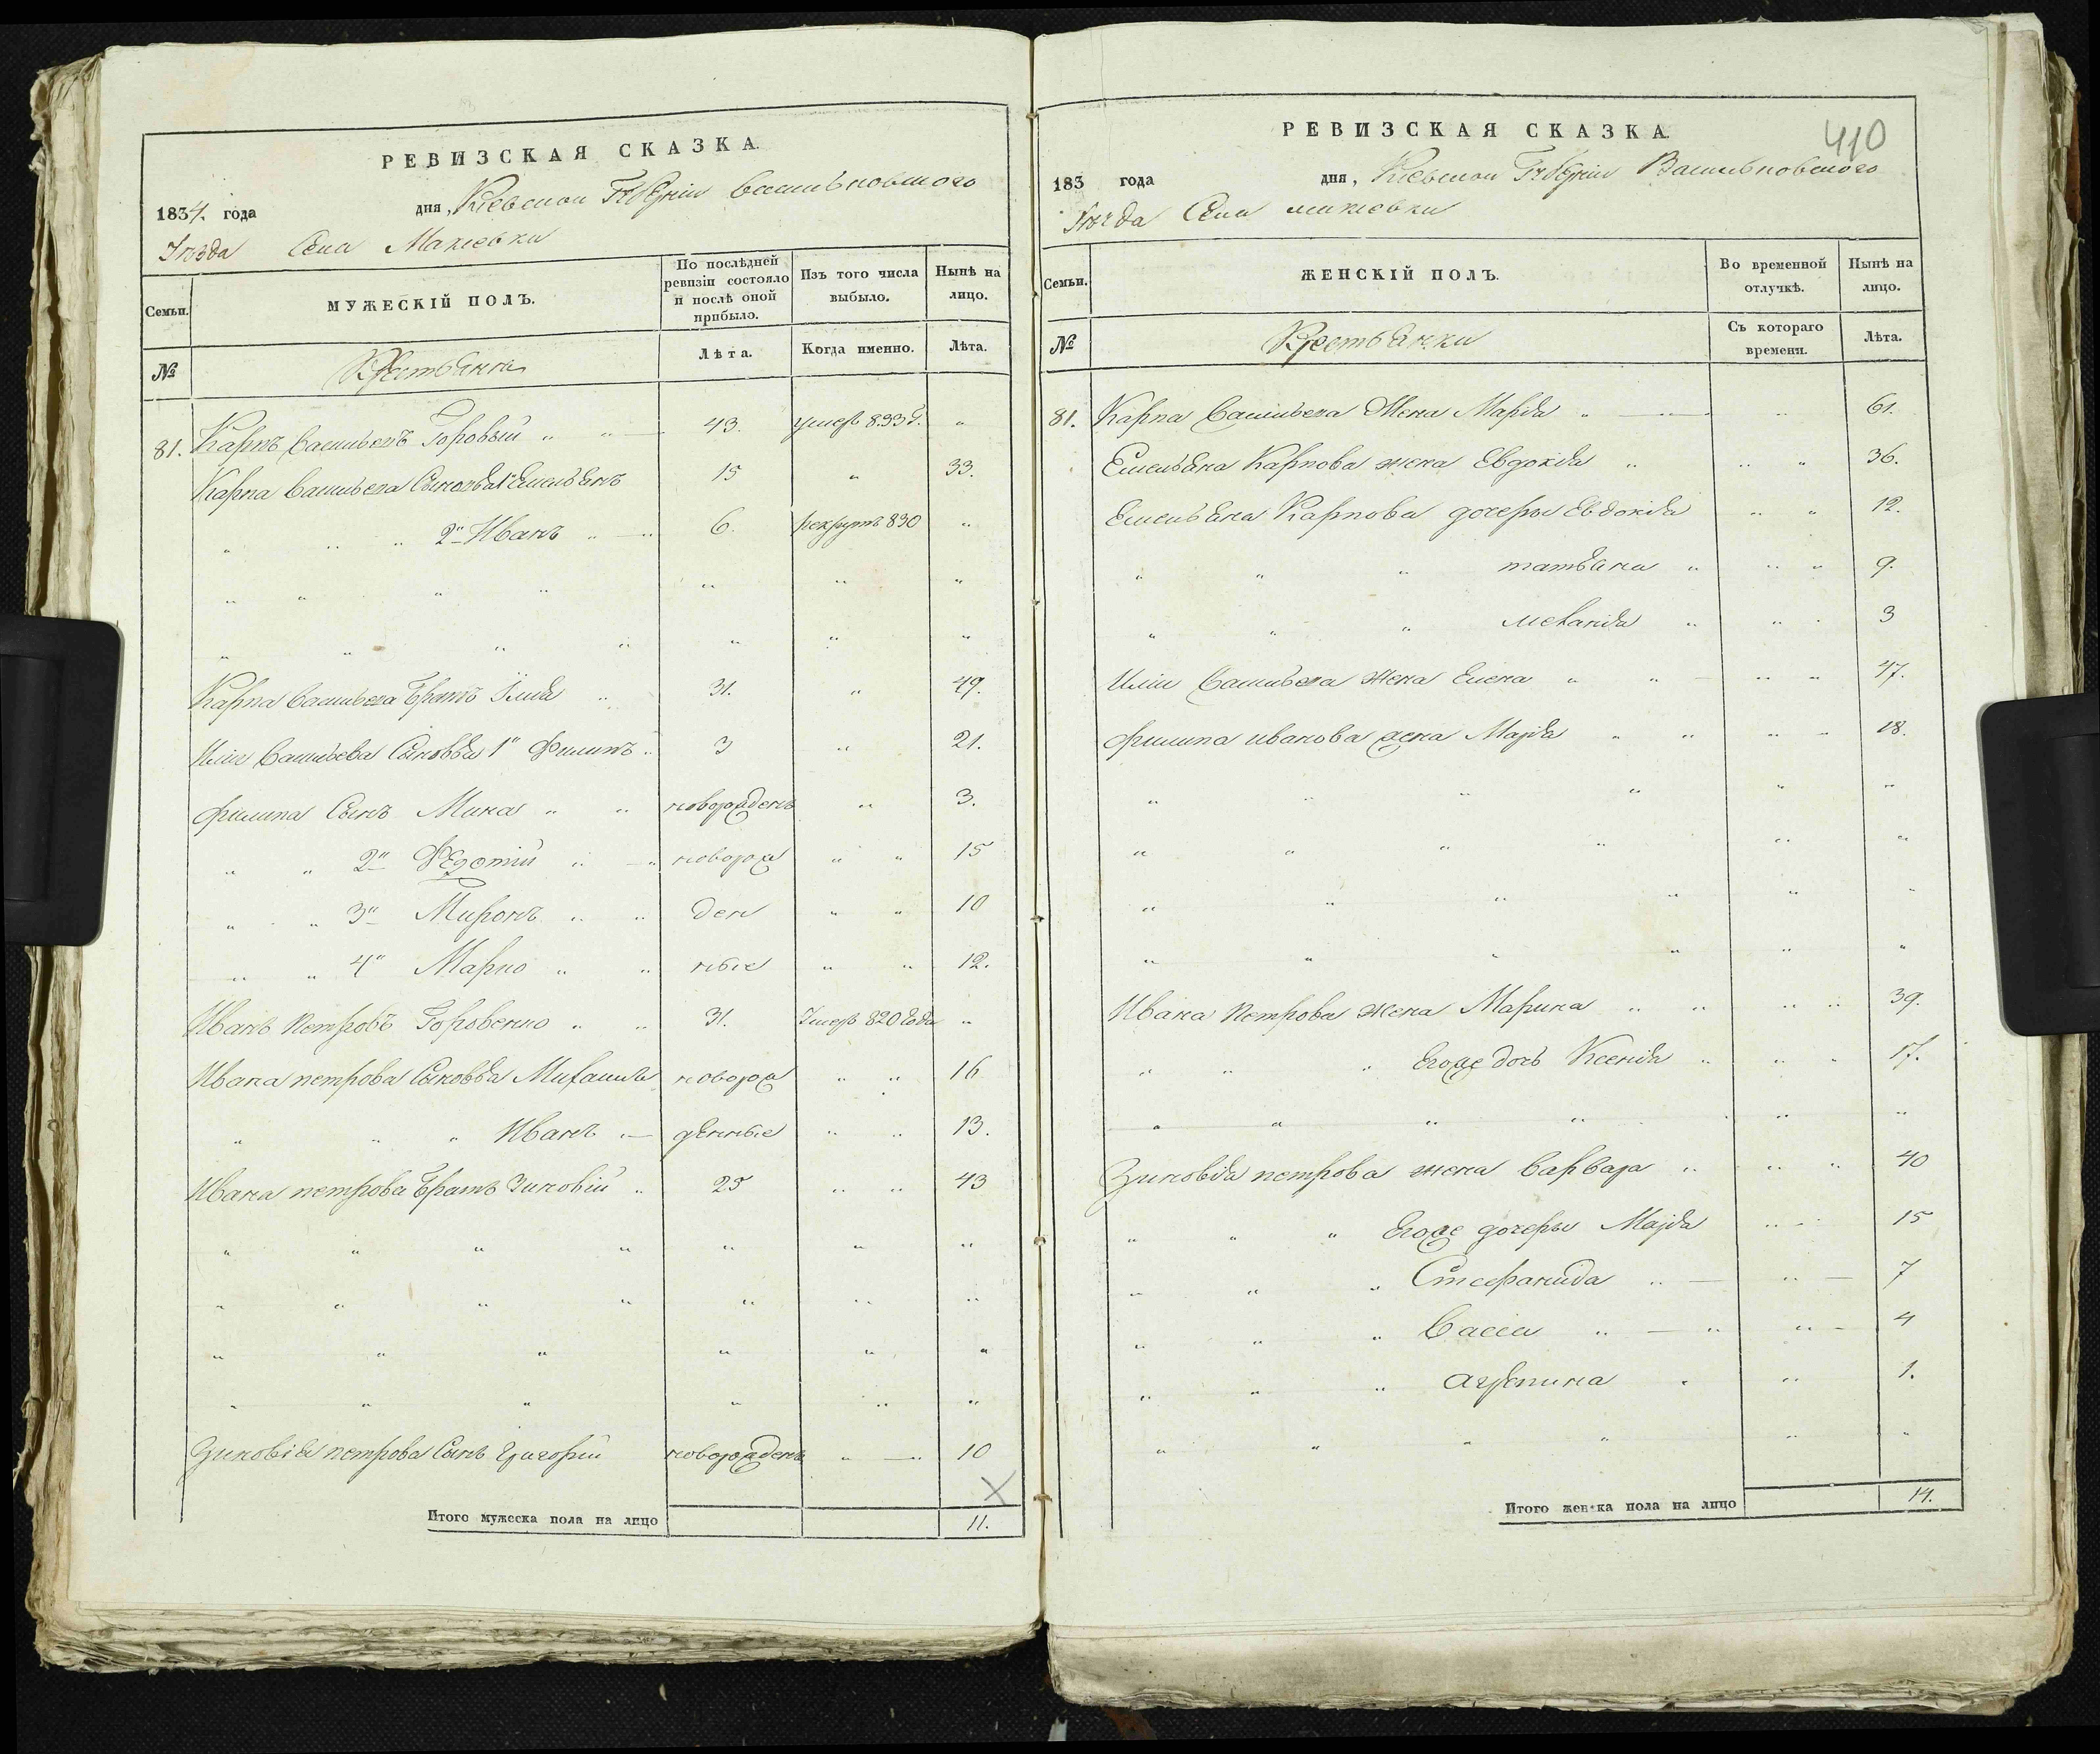 РЕВИЗСКАЯ СКАЗКА.
1834. года дня, Кіевской Губерніи Васильковского
Уѣзда Села Макіевки
Семьи. МУЖЕСКІЙ ПОЛЪ. По послѣдней ревизіи состояло и послѣ оной прибыло. Изъ того числа выбыло. Нынѣ на лицо.
№ Крестьяне Лѣта. Когда именно. Лѣта.
81. Карпъ Васильевъ Горовый " " 43. умеръ 833 г. "
Карпа Васильева Сыновья 1й Емельянъ 15 " 33.
" " " 2й Иванъ " 6. рекрутъ 830 "
" " " " " " "
" " " " " " "
Карпа Васильева Братъ Илья " 31. " 49.
Иліи Васильева Сыновья 1й Филипъ " 3 " 21.
Филипа Сынъ Мина " " новорожденъ " 3.
" " 2й Федотій " " новорож " " 15
" " 3й Миронъ " " ден " " 10
" " 4й Марко " " ные " " 12.
Иванъ Петровъ Горовенко " " 31. Умеръ 820 Года "
Ивана петрова Сыновья Михаилъ новорож " " 16
" " " Иванъ " денные " " 13.
Ивана петрова Братъ Зиновій " 25 " " 43
" " " " " " "
" " " " " " "
" " " " " "
" " " " " "
Зиновія петрова Сынъ Григорій новорожденъ " " 10
Итого мужеска пола на лицо 11.
410
РЕВИЗСКАЯ СКАЗКА.
183 года дня, Кіевской Губерніи Васильковского
Уѣзда Села макіевки
Семьи. ЖЕНСКІЙ ПОЛЪ. Во временной отлучкѣ. Нынѣ на лицо.
№ Крестьянки Съ котораго времени. Лѣта.
81. Карпа Васильева Жена Марія " " 61.
Емельяна Карпова жена Евдокія " " " 36.
Емельяна Карпова дочеры Евдокія " " 12.
" " " татьяна " " " 9.
" " " меланія " " 3
Иліи Васильева жена Елена " " " " 47.
Филипа иванова жена Марія " " " " 18.
" " " " " "
" " " " " "
" " " " " "
" " " " " "
Ивана Петрова жена Марина " " " " 39.
" " " Егоже дочь Ксенія " " " 17.
" " " " " "
Зиновія петрова жена Варвара " " " 40
" " " Егоже дочеры Марія " " 15
" " " Стефанида " " 7
" " " Васса " " " 4
" " " агрепина " " 1.
" " " " " "
Итого женска пола на лицо 14.